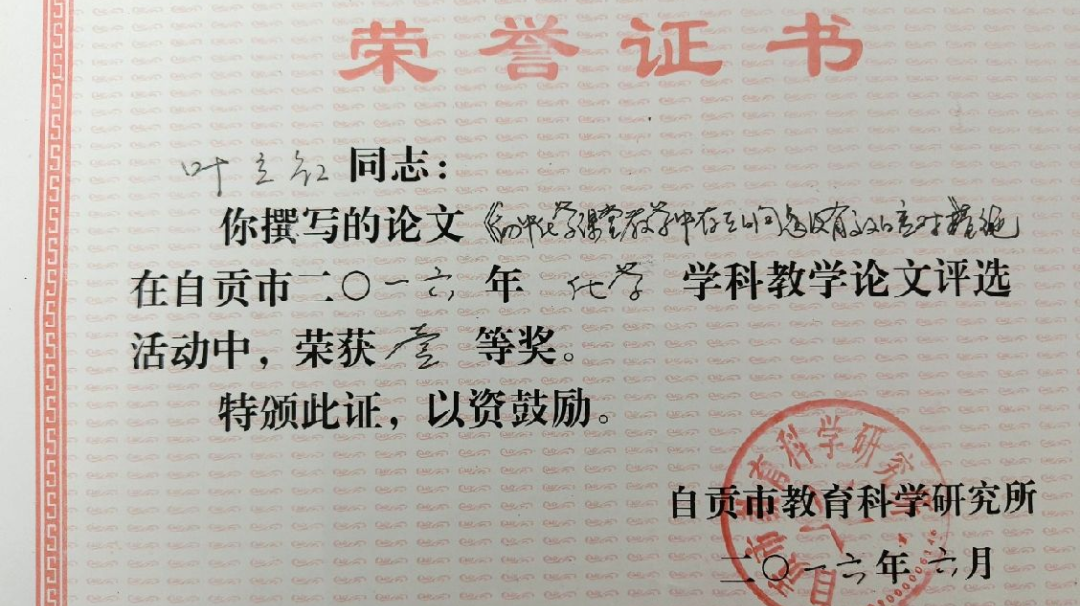 荣誉证书
叶立红同志：
你撰写的论文《初中化学课堂教学中存在的问题及有效的应对措施
在自贡市二〇一六年化学学科教学论文评选
活动中，荣获壹等奖。
特颁此证，以资鼓励。
自贡市教育科学研究所
二〇一六年六月